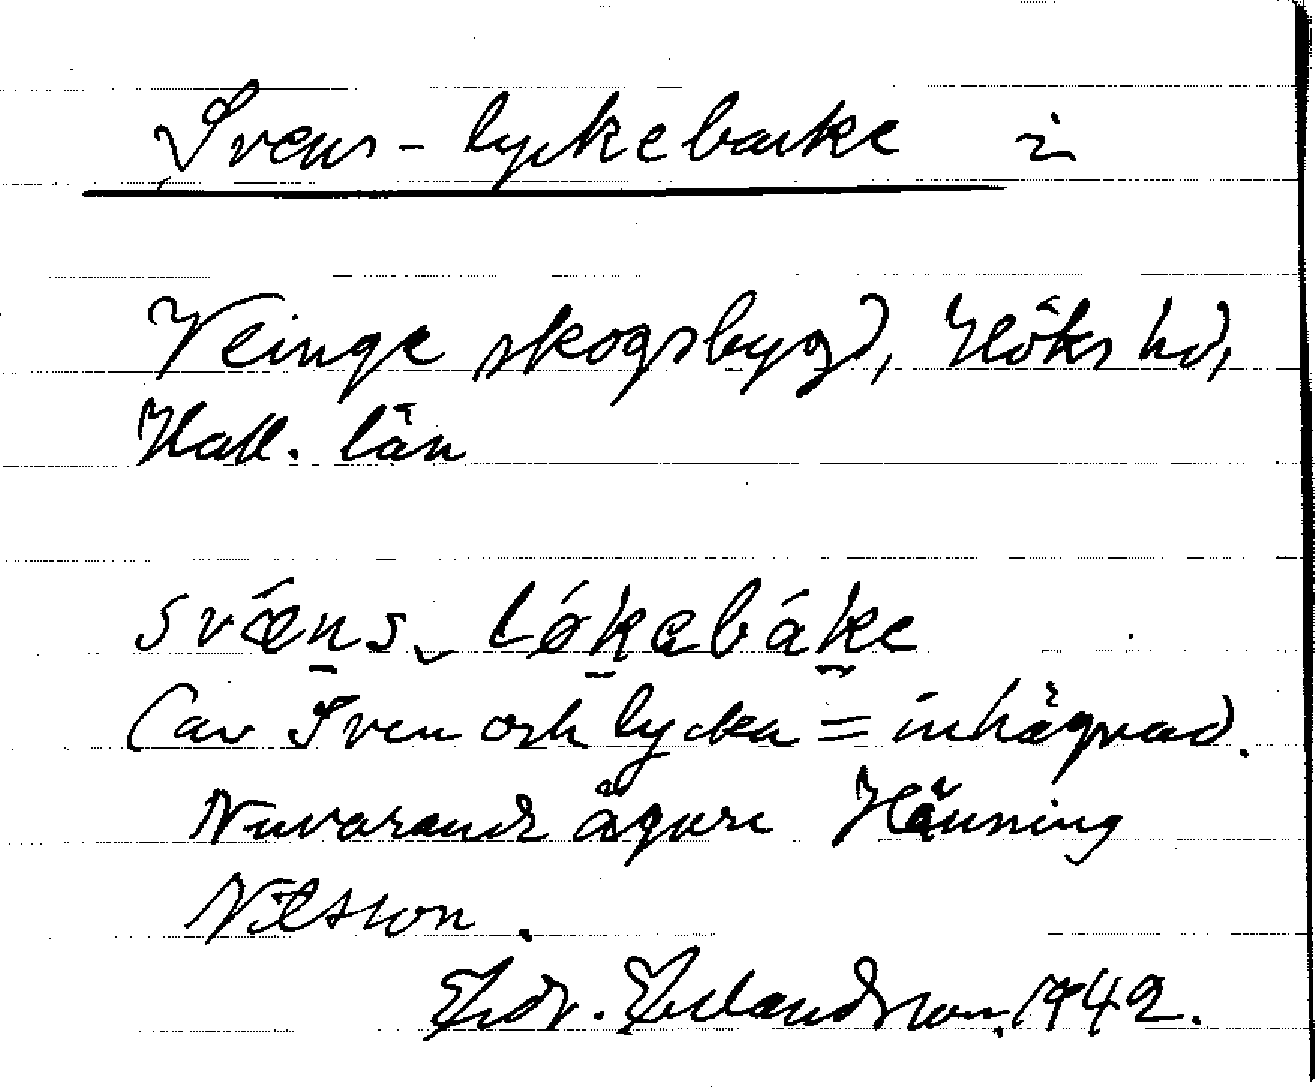 Svens-lyckebacke i
Veinge skogsbygd, Höks hd,
Hall. län
svǽns_ lókabáke
(av Sven och lycka = inhägnad.
Nuvarande ägare Hänning
Nilsson.
Erlandsson, 1942.